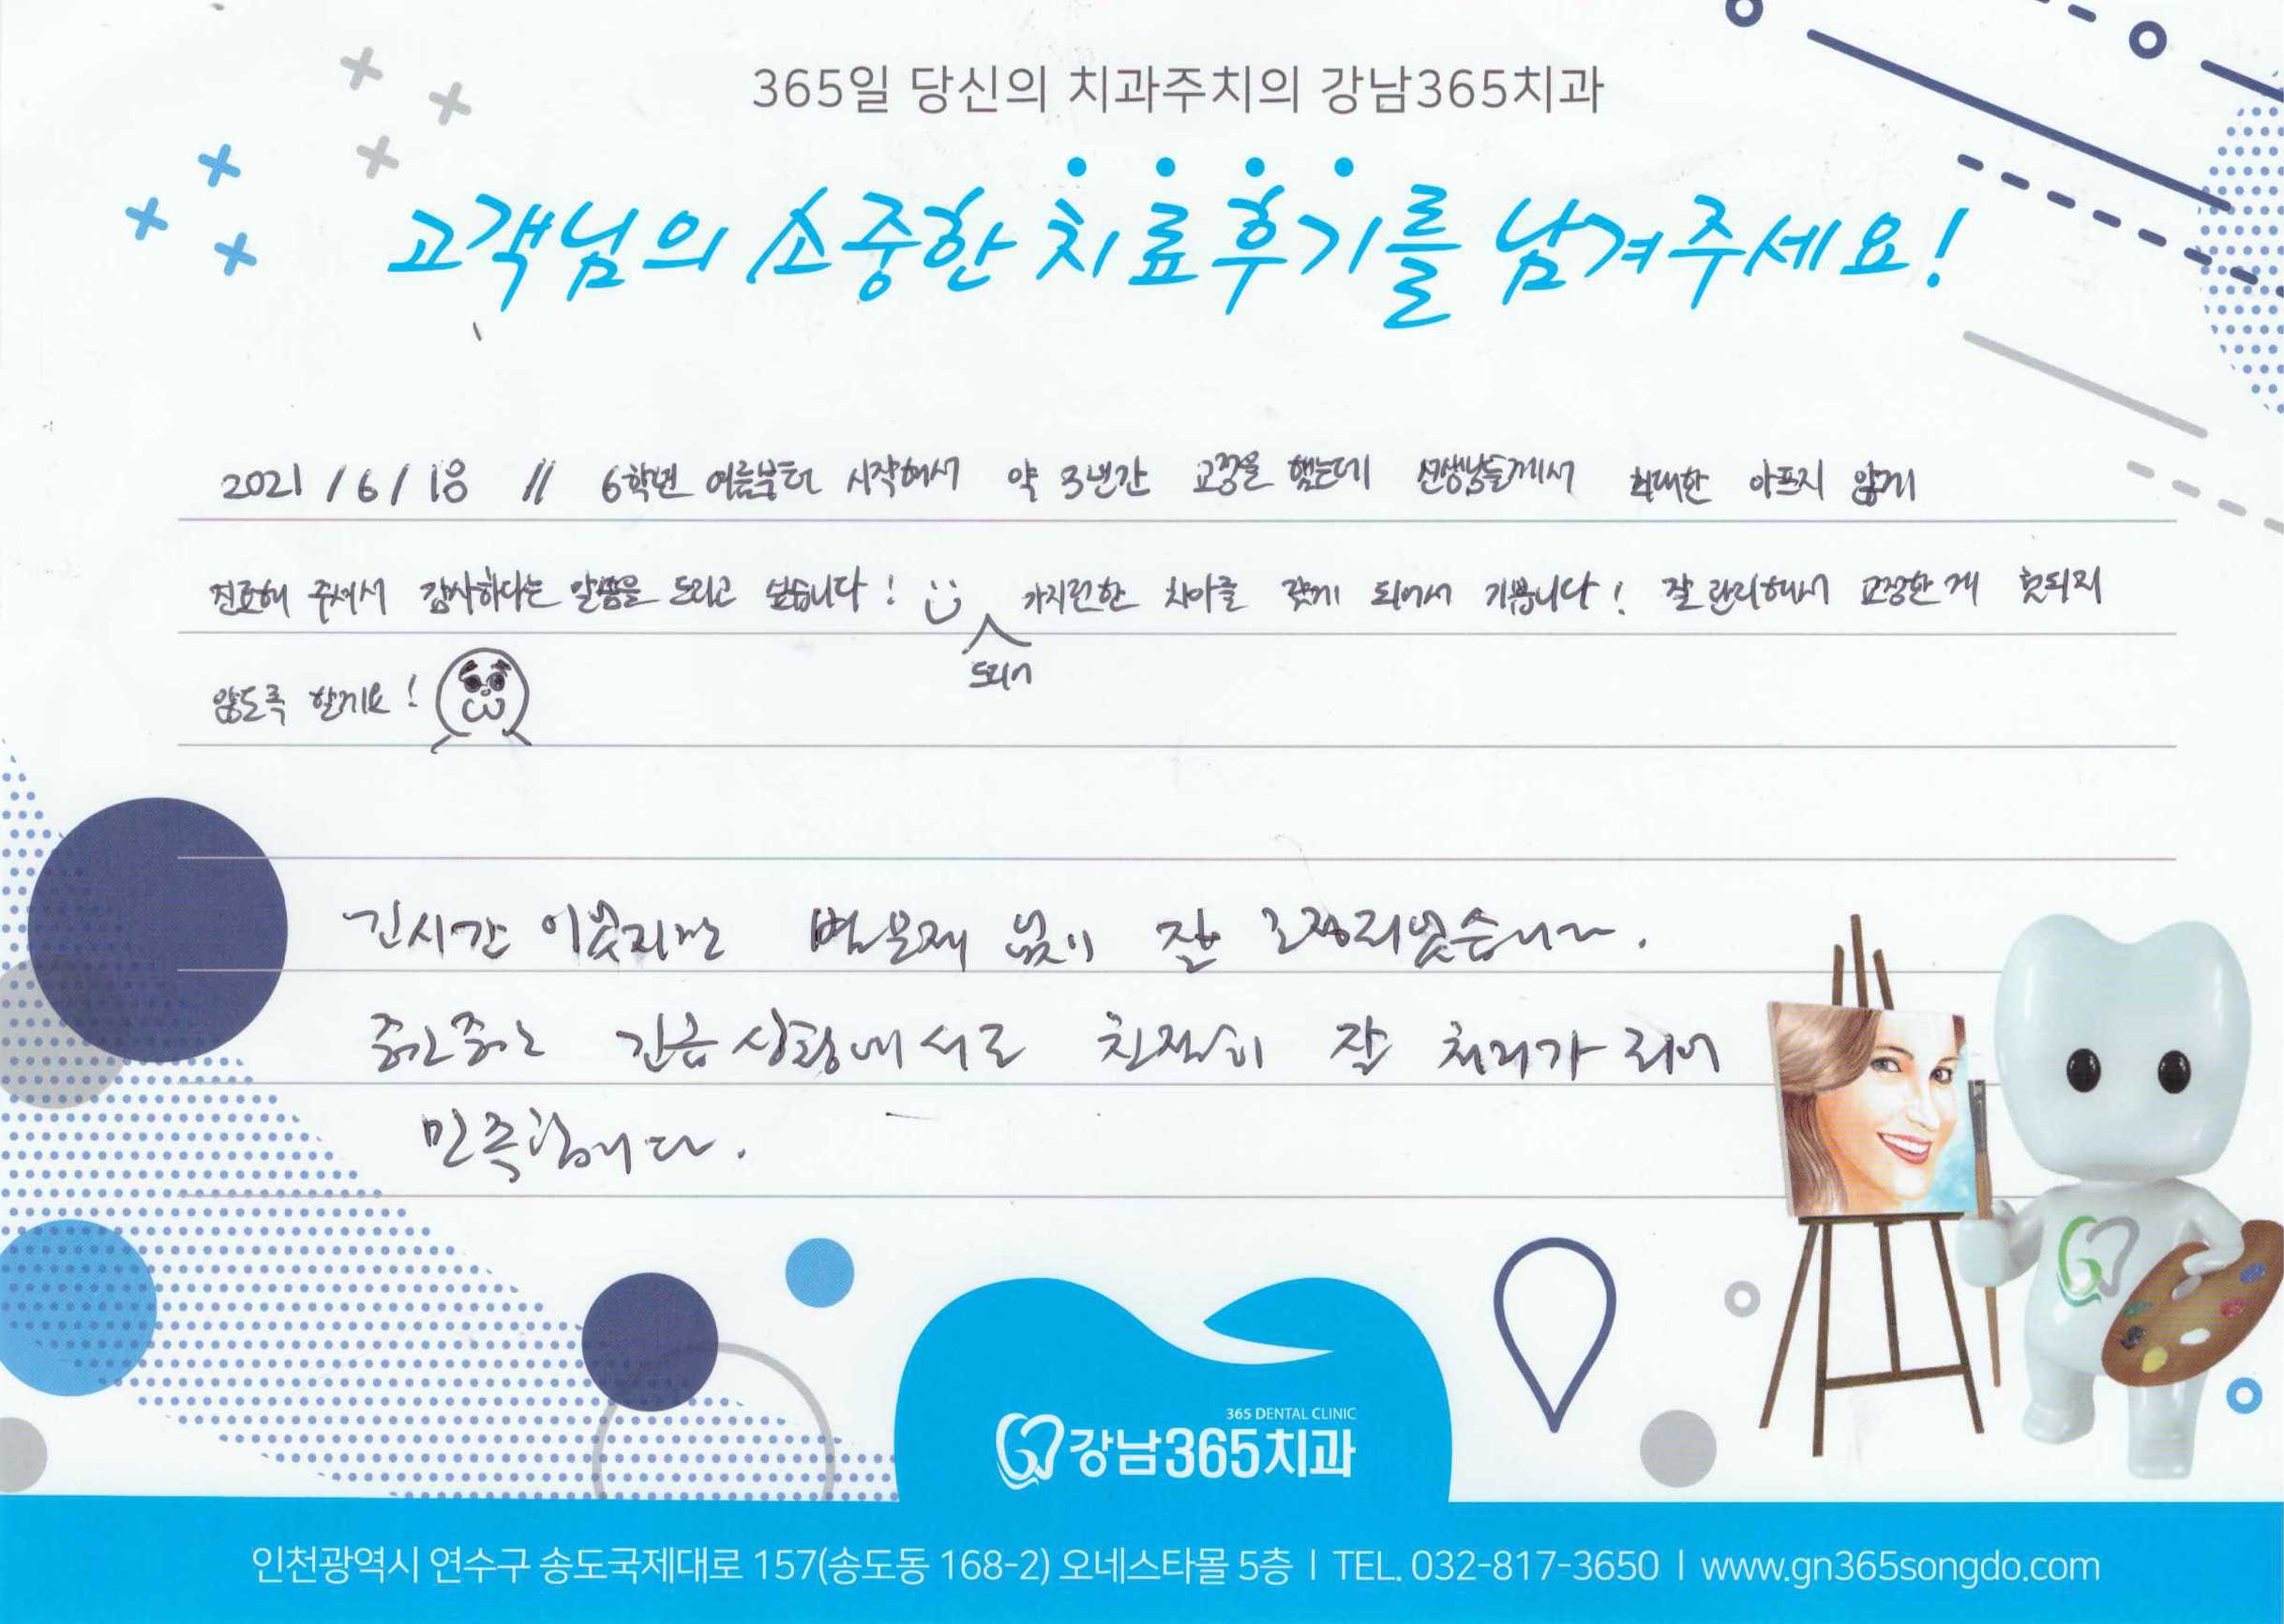 365일 당신의 치과주치의 강남365치과
고객님의 소중한 치료후기를 남겨주세요!
2021 / 6 / 18 // 6학년 여름부터 시작해서 약 3년간 교정을 했는데 선생님들께서 최대한 아프지 않게
진료해 주셔서 감사하다는 말씀을 드리고 싶습니다! 가지런한 치아를 갖게 되어서 기쁩니다! 잘 관리해서 교정한 게 헛되지
드디어
않도록 할게요!
긴시간 이었지만 별문제 없이 잘 교정되었습니다.
중간중간 긴급상황에서도 친절히 잘 처리가 되어
만족합니다.
365 DENTAL CLINIC
강남365치과
인천광역시 연수구 송도국제대로 157(송도동 168-2) 오네스타몰 5층 | TEL. 032-817-3650 | www.gn365songdo.com